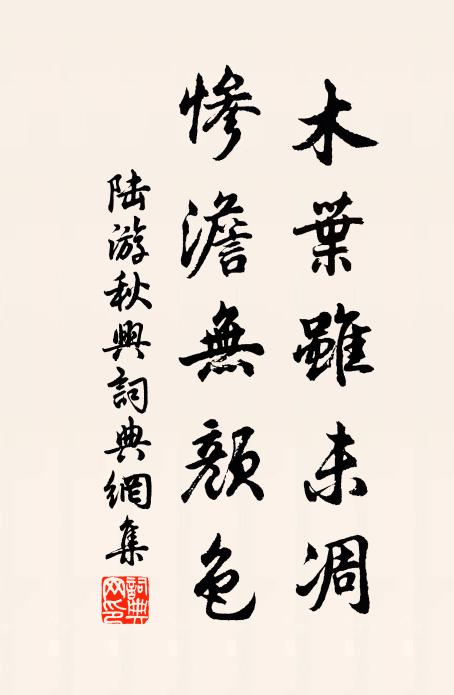 木葉雖未凋
慘澹無顏色
陆游秋興詞典網集
詞典网印